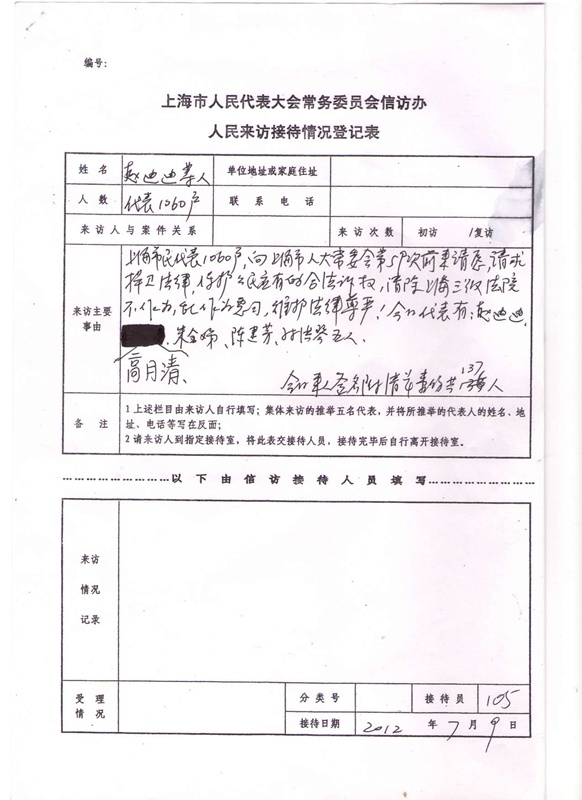 编号：
上海市人民代表大会常务委员会信访办
人民来访接待情况登记表
姓名 赵迪迪等人 单位地址或家庭住址
人数 代表1060户 联系电话
来访人与案件关系 来访次数 初访 /复访
来访主要事由
上海市民代表1060户,向上海市人大常委会第57次前来请愿,请求
捍卫法律,保护公民应有的合法诉权,清除上海三级法院
不作为,乱作为恶习,维护法律尊严!今的代表有:赵迪迪
、朱金娣、陈建芳、 五人.
高月清、
今的来人签名附请 共137人
备注
1 上述栏目由来访人自行填写；集体来访的推举五名代表，并将所推举的代表人的姓名、地
址、电话等写在反面；
2 请来访人到指定接待室，将此表交接待人员，接待完毕后自行离开接待室。
………………………以下由信访接待人员填写………………………
来访
情况
记录
受理情况 分类号 接待员 105
接待日期 2012 年 7 月 9 日